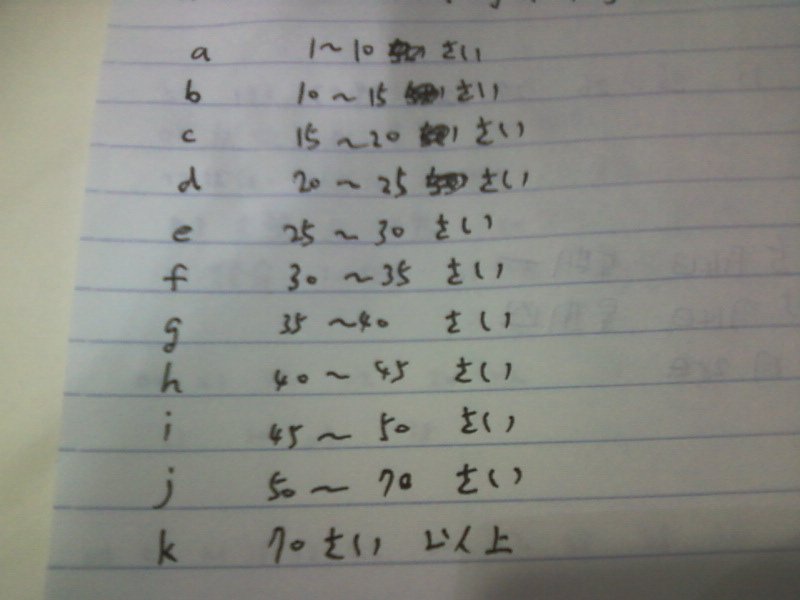 a 1～10 さい
b 10～15 さい
c 15～20 さい
d 20～25 さい
e 25～30 さい
f 30～35 さい
g 35～40 さい
h 40～45 さい
i 45～50 さい
j 50～70 さい
k 70さい 以上